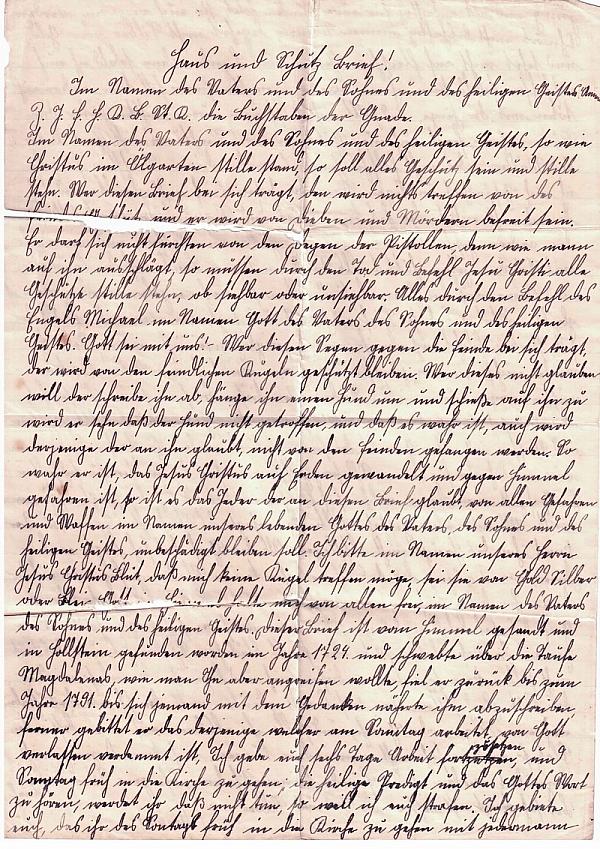 Haus und Schutz Brief!
Im Namen des Vaters und des Sohnes und des heiligen Geistes Amen
Z. J. F. H. K. B. St. K. die Buchstaben der Gnade.
Im Namen des Vaters und des Sohnes und des heiligen Geistes, so wie
Christus im Ölgarten stille stand, so soll alles Geschütz sein und stille
stehn. Wer diesen Brief bei sich trägt, den wird nichts treffen von des
und er wird von Dieben und Mördern befreit sein.
Er darf sich nicht fürchten von den Degen der Pistollen, denn wie mann
auf ihn anschlägt, so müssen durch den Tod und Befehl Jesu Christi alle
Geschütze stille stehn, ob sichbar oder unsichbar. Alles durch den Befehl des
Engels Michael im Namen Gott des Vaters des Sohnes und des heiligen
Geistes. Gott sei mit uns! Wer diesen Segen gegen die Feinde bei sich trägt,
der wird von den feindlichen Kugeln geschützt bleiben. Wer dieses nicht glauben
will der schreibe ihn ab, hänge ihn einen Hund um und schieße auf ihn zu
wird er sehn daß der Hund nicht getroffen, und daß es wahr ist, auch wird
derjenige der an ihn glaubt, nicht von den Feinden gefangen werden. So
wahr er ist, das Jesus Christus auf Erden gewandelt und gegen Himmel
gefahren ist, so ist es das Jeder der an diesen Brief glaubt, von allen Gefahren
und Waffen im Namen unseres lebenden Gottes des Vaters, des Sohnes und des
heiligen Geistes, unbeschädigt bleiben soll. Ich bitte im Namen unseres Herrn
Jesus Christus Blut, daß mich keine Kugel treffen möge, sei sie von Gold Silber
oder Blei Gott im halte mich von allen frei, im Namen des Vaters
des Sohnes und des heiligen Geistes. Dieser Brief ist vom Himmel gesandt und
in Hollstein gefunden worden im Jahre 1724. und schwebte über die Taufe
Magdalenas, wie man ihn aber angreifen wollte, fiel er zurück bis zum
Jahre 1791. bis sich jemand mit dem Gedanken nährte ihn abzuschreiben
ferner gebittet er das derjenige welcher am Sonntag arbeitet, von Gott
verlassen verdammt ist, Ich gebe euch sechs Tage Arbeit fortzusetzen, und
Sonntag früh in die Kirche zu gehen, die heilige Predigt und das Gottes Wort
zu hören, werdet ihr daß nicht tun, so will ich euch strafen. Ich gebiete
euch, das ihr des Sontags früh in die Kirche zu gehen mit jedermann